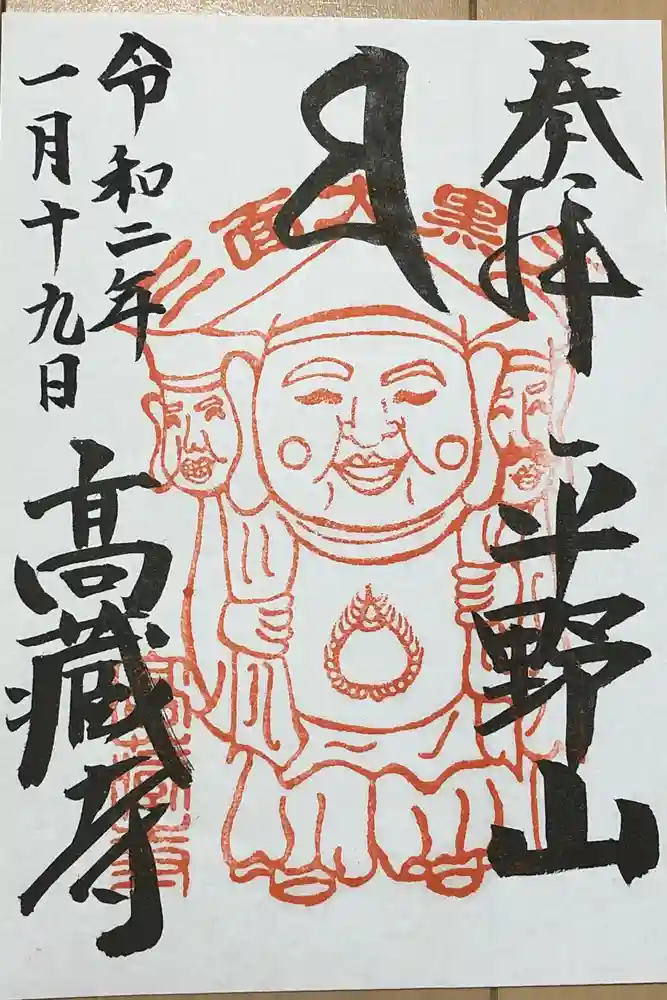 奉拝
平野山
三面大黒
令和二年
一月十九日
高蔵寺